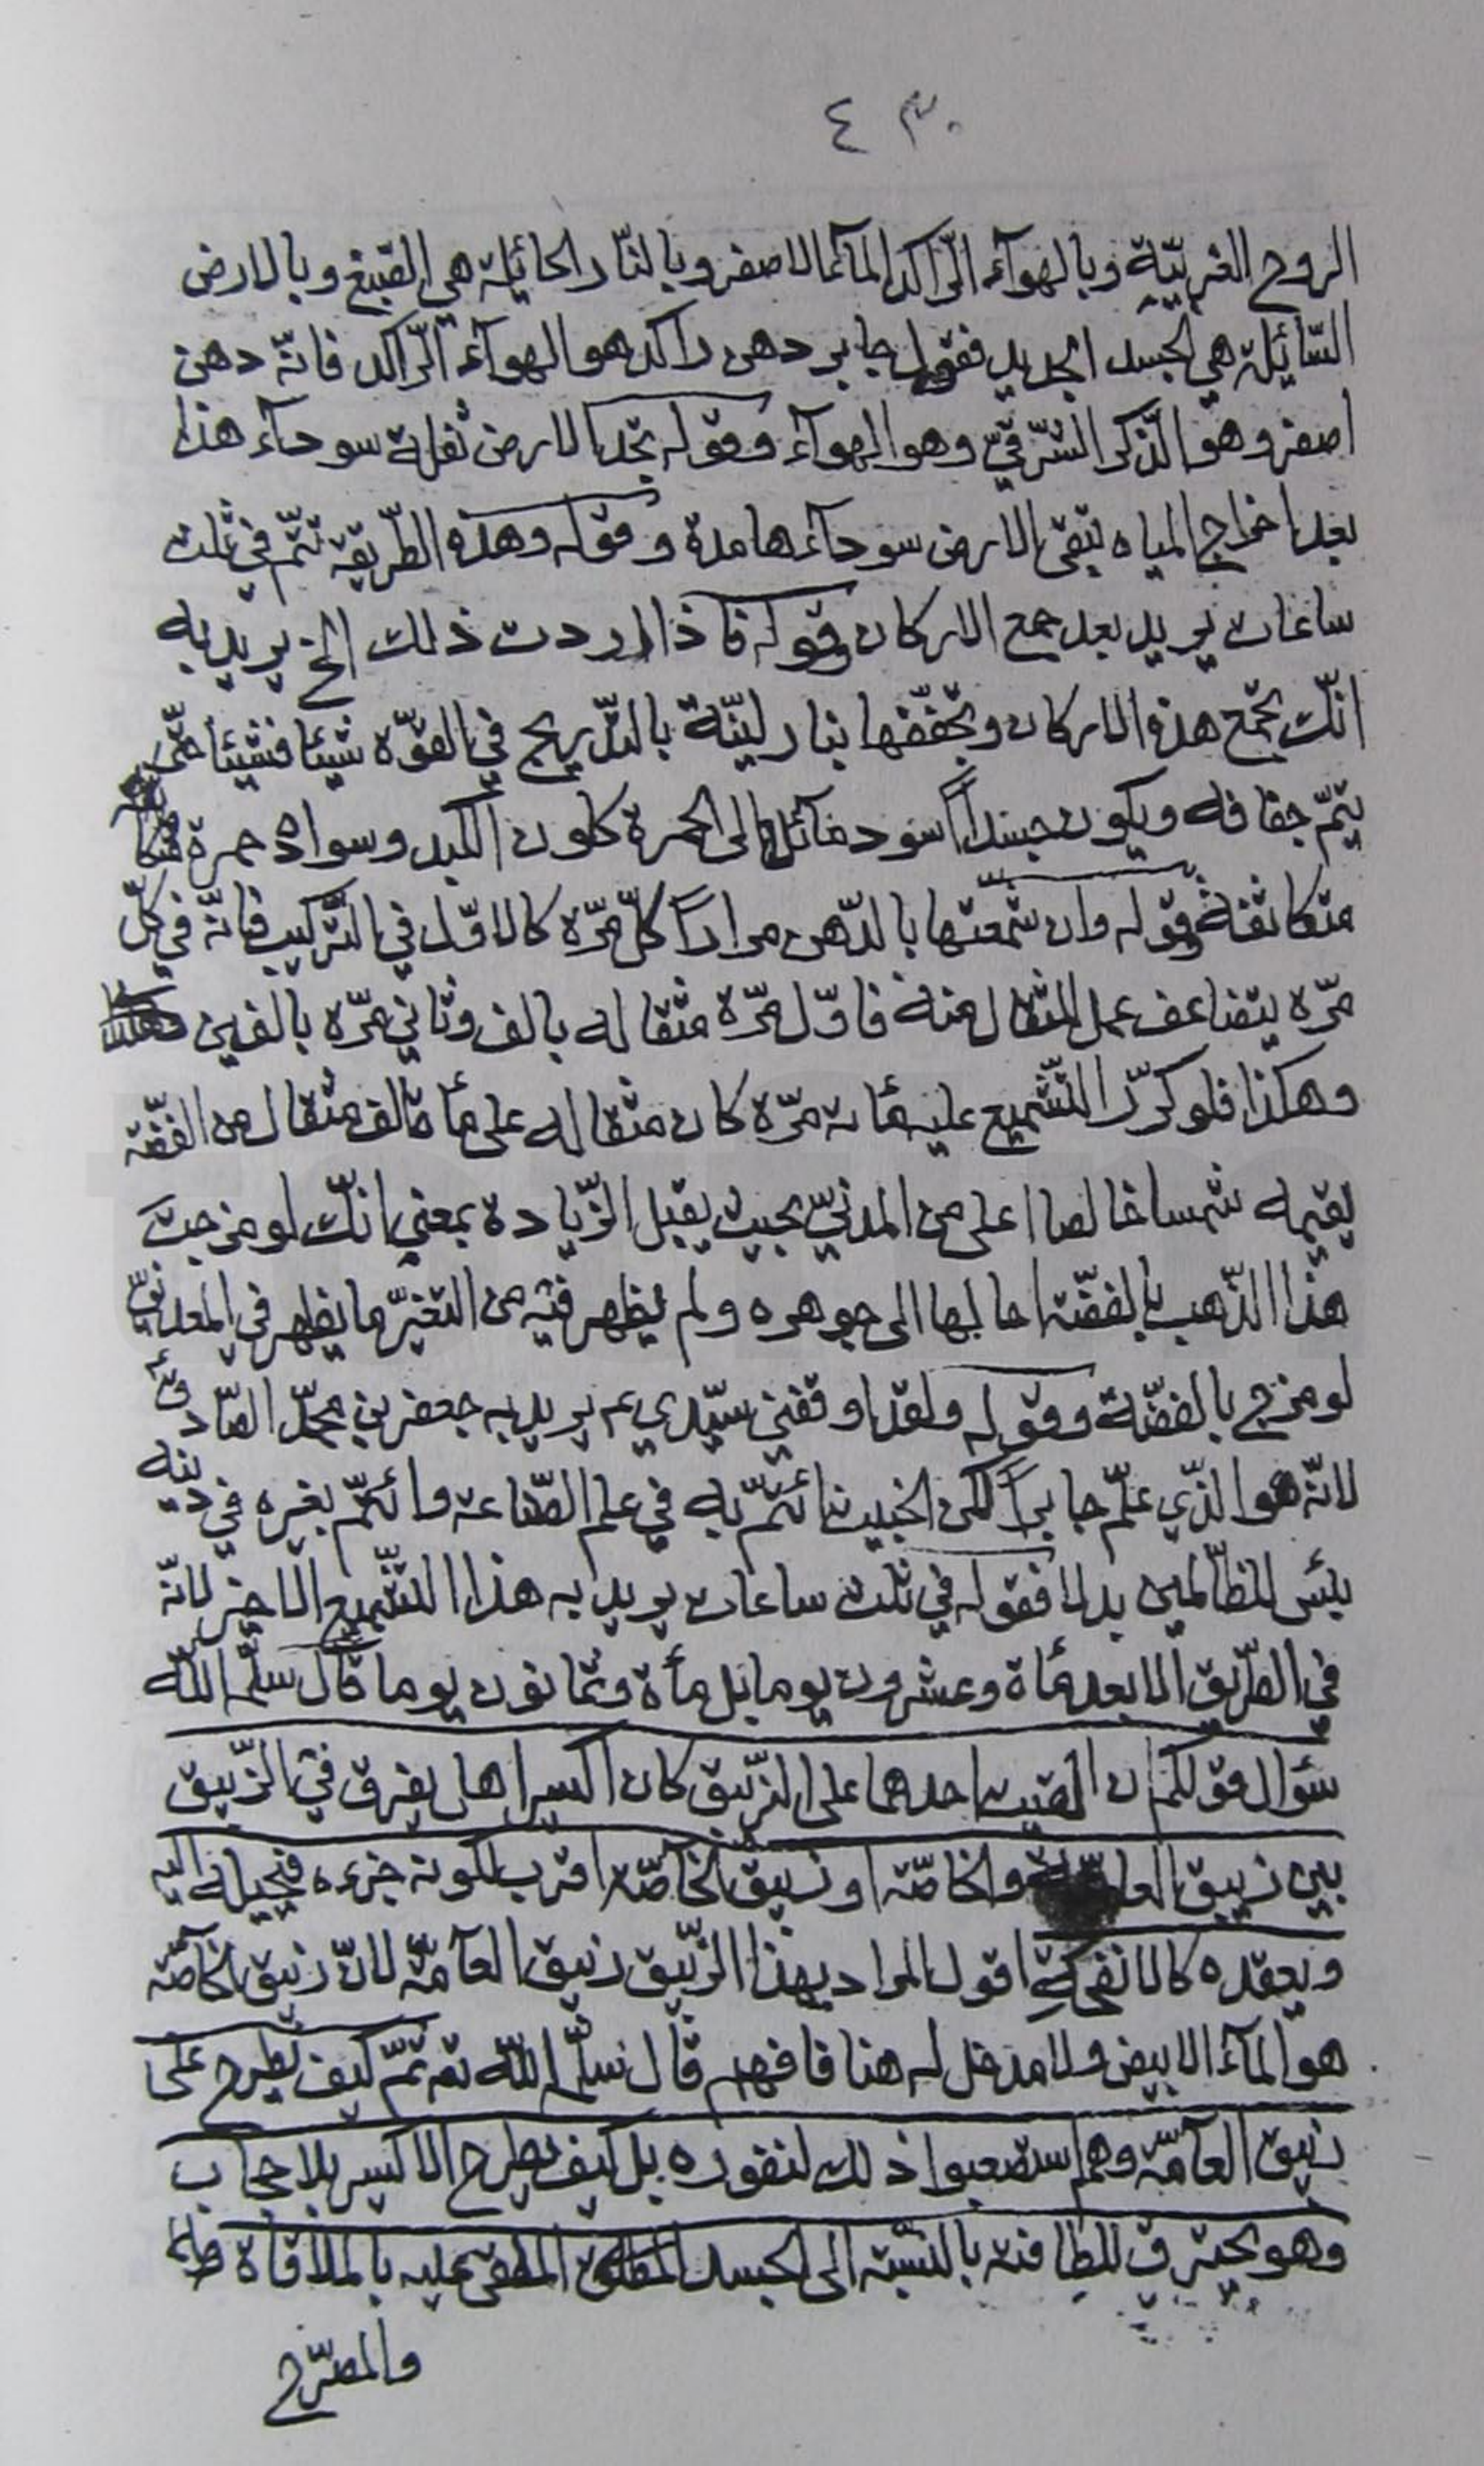 ٤٣٠
الروح الغربيّة وبالهوآء الرّاكد المآء الاصفر وبالنّار الحائلة هي الصّبغ وبالارض
السّائلة هي الجسد الجديد فقول جابر دهن راكد هو الهوآء الرّاكد فانّه دهن
اصفر وهو الذّكر الشّرقيّ وهو الهوآء وقوله تجد الارض ثفلة سودآء هذا
بعد اخراج المياه تبقى الارض سودآء هامدة وقوله وهذه الطّريقة تتمّ في ثلث
ساعات يريد بعد جمع الاركان وقوله فاذا اردت ذلك الخ يريد به
انّك تجمع هذه الاركان وتجفّفها بنار ليّنة بالتّدريج في القوّة شيئا فشيئا حتّى
يتمّ جفافه ويكون جسداً اسود مائلا الى الحمرة كلون الكبد وسواده حمرة
متكاثفة وقوله وان شمّعتها بالدّهن مراراً كلّ مرّة كالاوّل في التّركيب فانّه في كلّ
مرّة يتضاعف عمل المثقال منه فاوّل مرّة مثقاله بالف وثاني مرّه بالفين
وهكذا فلو كرّر التّشميع عليه مأة مرّة كان مثقاله على مأة الف مثقال من الفضّة
يقيمه شمسا خالصا اعلى من المدنيّ بحيث يقبل الزّيادة بمعنى انّك لو مزجت
هذا الذّهب بالفضّة احالها الى جوهره ولم يظهر فيه من التغيّر ما يظهر في المعدنيّ
لو مزج بالفضّة وقوله ولقد اوقفني سيّدي عم يريد به جعفر بن محمّد الصّادق ع
لانّه هو الذّي علّم جابراً لكن الخبيث ائتمّ به في علم الصّناعة وائتمّ بغيره في دينه
بئس للظّالمين بدلا فقوله في ثلث ساعات يريد به هذا التّشميع الاخير لانّه
في الطّريق الابعد مأة وعشرون يوما بل مأة وثمانون يوما قال سلّمه اللّه
سؤال قولكم ان القيت احدهما على الزّيبق كان اكسيرا هل يفرق في الزّيبق
بين زيبق العامّة والخاصّة او زيبق الخاصّة اقرب لكونه جزءه فيحيله اليه
ويعقده كالانفحة اقول المراد بهذا الزّيبق زيبق العآمّة لانّ زيبق الخآصّة
هو المآء الابيض ولا مدخل له هنا فافهم قال سلّمه اللّه ثم كيف يطرح على
زيبق العآمّة وهم استصعبوا ذلك لنفوره بل كيف يطرح الاكسير بلا حجاب
وهو يحترق للطافته بالنّسبة الى الجسد الملقى عليه بالملاقاة
والمصرّح